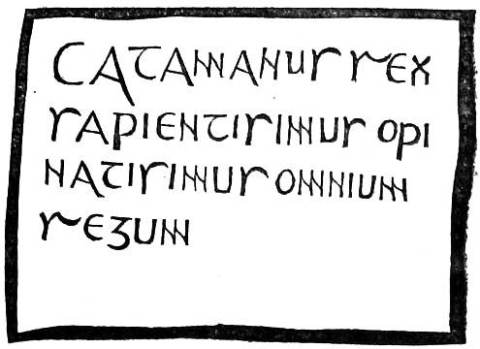 CATAMANUS REX
SAPIENTISIMUS OPI
NATISIMUS OMNIUM
REGUM